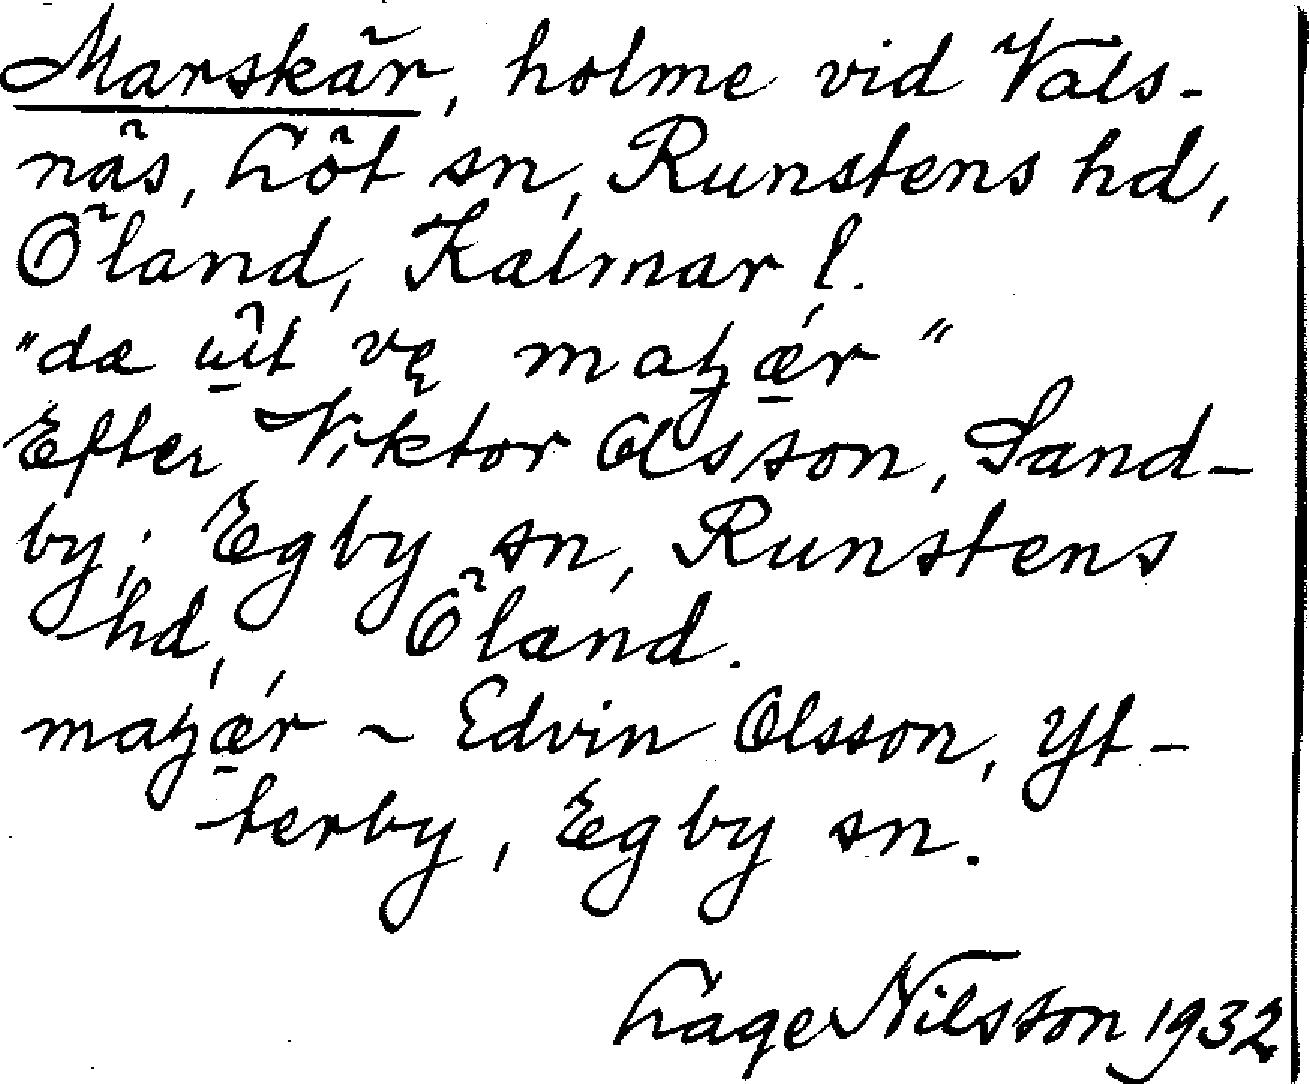 Marskär, holme vid Vals-
näs, Löt sn, Runstens hd,
Öland, Kalmar l.
"dæ
Efter Viktor Olsson, Sand-
by, Egby sn, Runstens
hd, Öland.
~ Edvin Olsson, Yt-
terby, Egby sn.
Lage Nilsson 1932